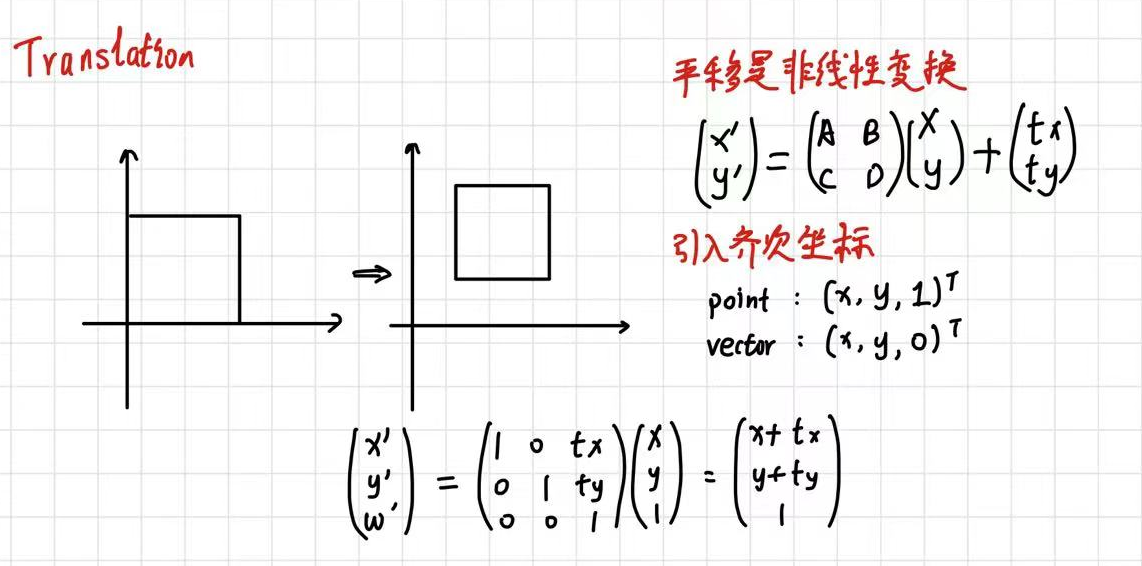 Translation
平移是非线性变换
(x' y') = (A B C D)(x y) + (tx ty)
引入齐次坐标
point : (x, y, 1)ᵀ
vector : (x, y, 0)ᵀ
(x' y' w') = (1 0 tx 0 1 ty 0 0 1)(x y 1) = (x+tx y+ty 1)